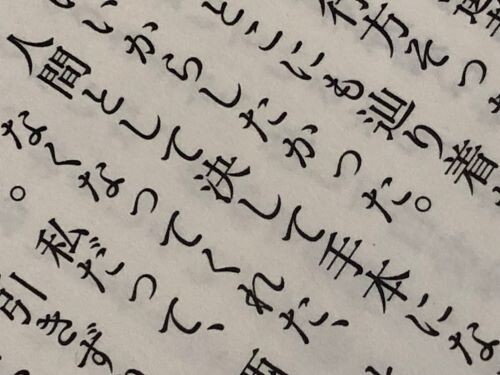 方そっ
どこにも辿り着
いからしたかった。
人間として決して手本にな
なくなってくれた、
。私だって、
引きず